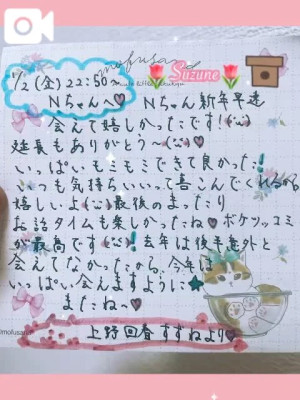 mofusand
Suzune
1/2(金)22:50〜
Nちゃんへ♥ Nちゃん新年早速
会えて嬉しかったです!(¨̮)
延長もありがとう〜(¨̮)♥
いっぱいモミモミできて良かった!
いつも気持ちいいって喜こんでくれるから
嬉しいよ(¨̮)最後のまったり
お話タイムも楽しかったね♥ ポケツッコミ
が最高です(¨̮)!去年は後半意外と
会えてなかったから、今年は
いっぱい会えますように★
またね〜♥
上野回春すずねより♥
mofusand